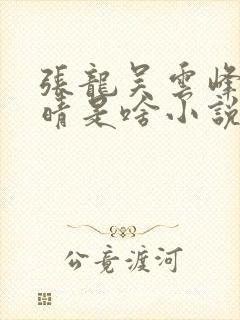 張龍吳雲峰
晴是啥小說
公竟渡河